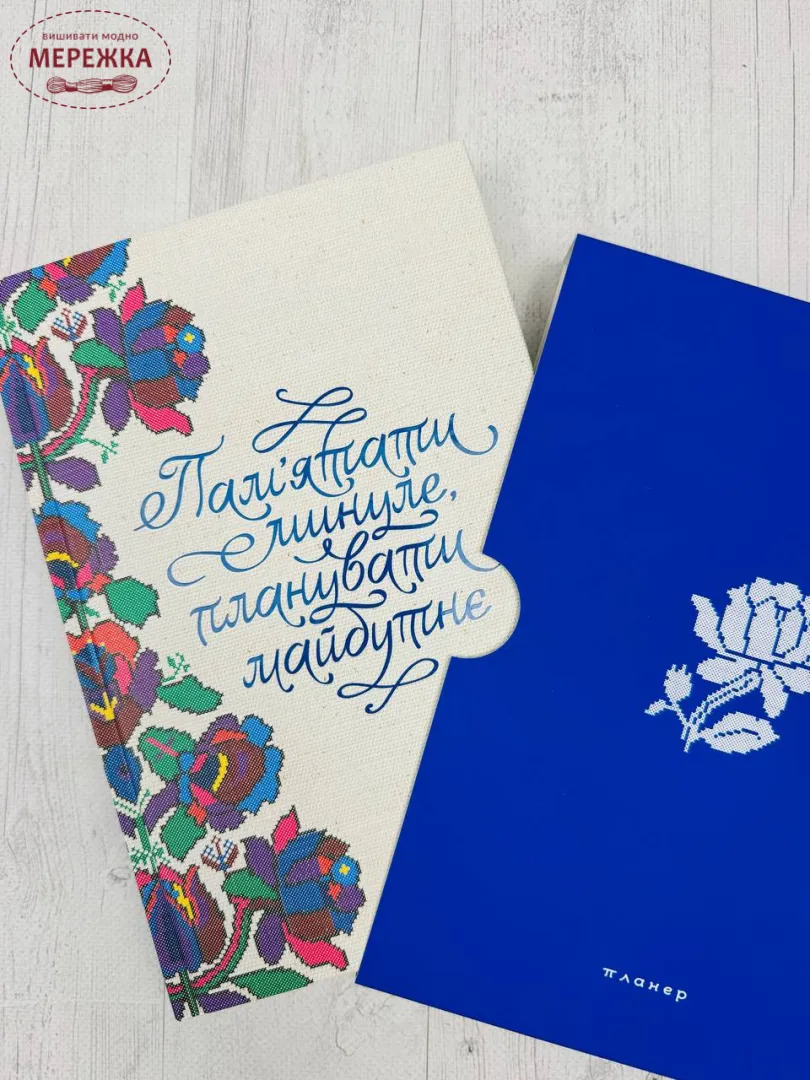 вишивати модно
МЕРЕЖКА
Пам'ятати
минуле,
планувати
майбутнє
планер